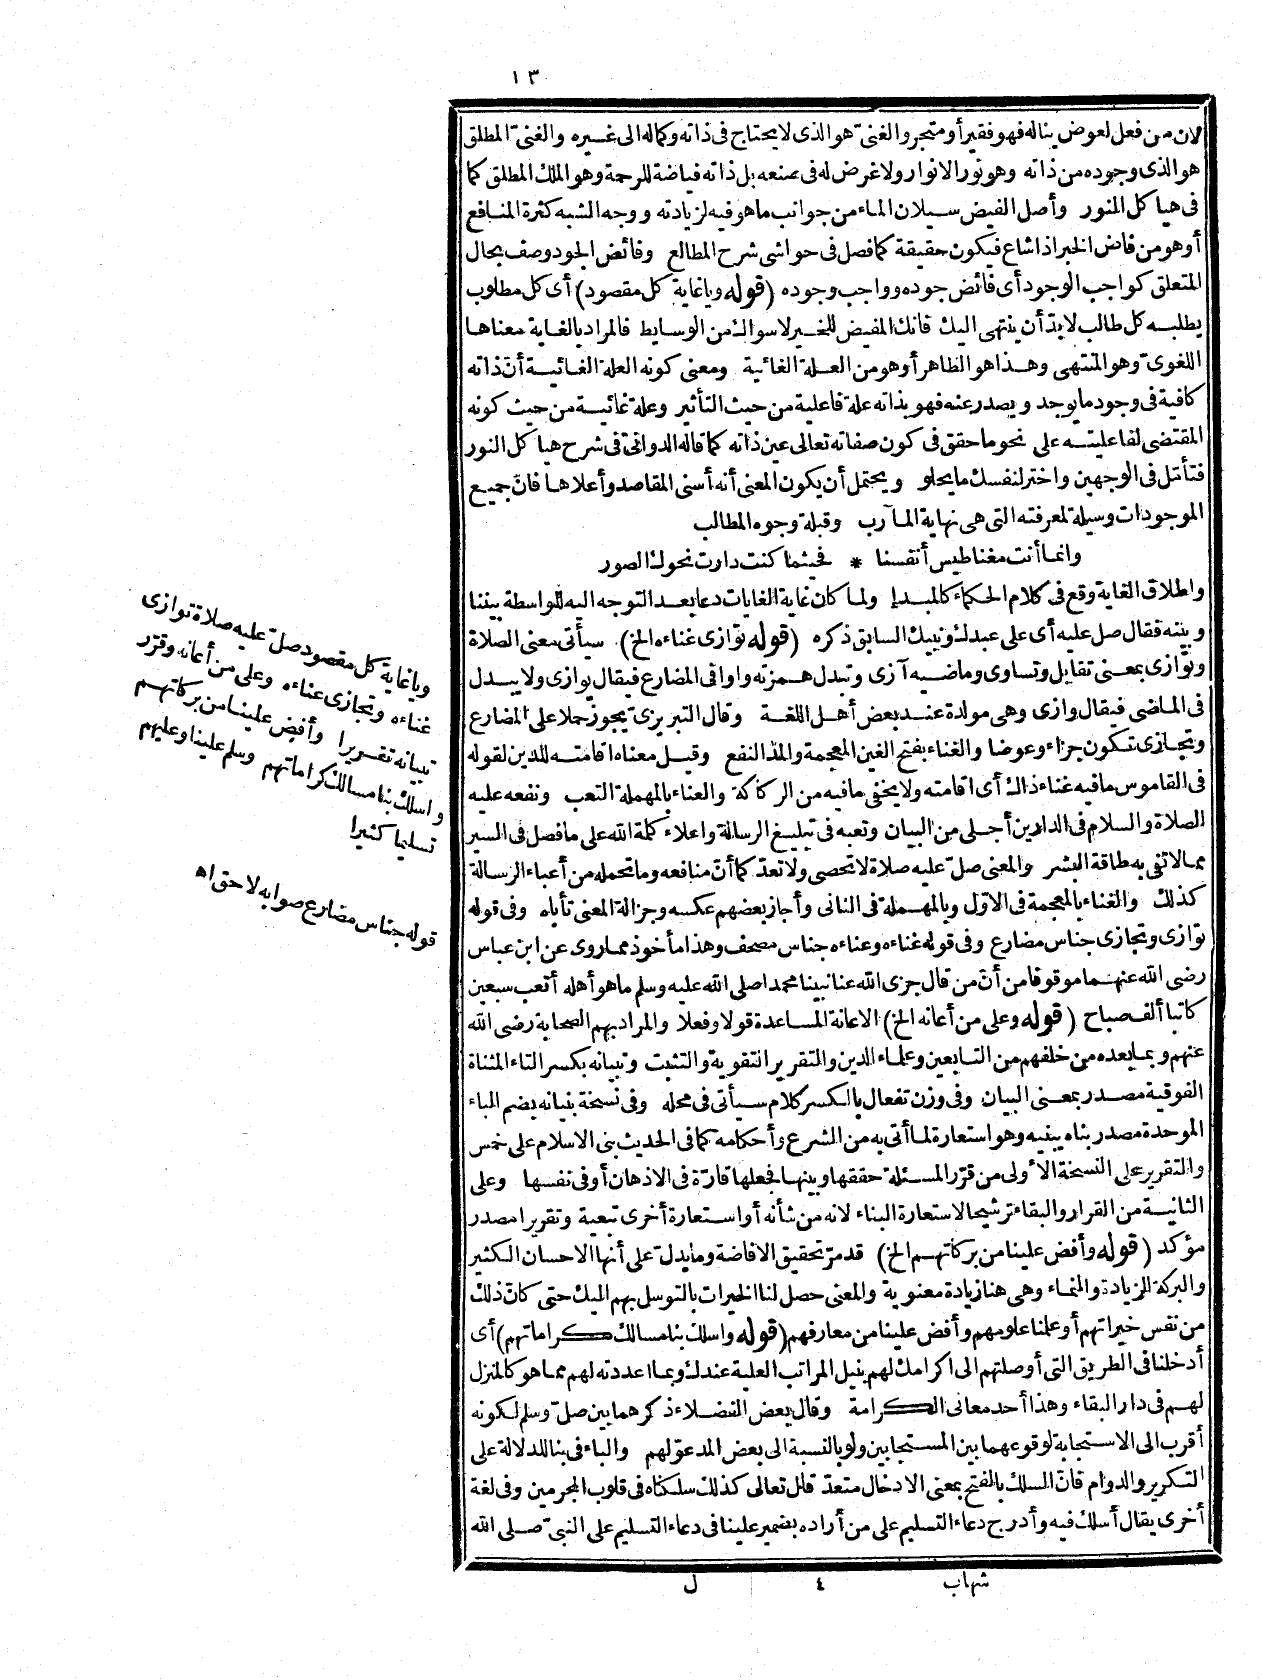 ١٣
لان من فعل لعوض يناله فهو فقير أو متجر والغنىّ هو الذى لا يحتاج فى ذاته وكماله الى غيره والغنىّ المطلق
هو الذى وجوده من ذاته وهو نور الانوار ولا غرض له فى صنعه بل ذاته فياضة للرحمة وهو الملك المطلق كما
فى هياكل النور وأصل الفيض سيلان الماء من جوانب ما هو فيه لزيادته ووجه الشبه كثرة المنافع
أو هو من فاض الخبر اذا شاع فيكون حقيقة كما فصل فى حواشى شرح المطالع وفائض الجود وصف بحال
المتعلق كواجب الوجود أى فائض جوده وواجب وجوده (قوله ويا غاية كل مقصود) أى كل مطلوب
يطلبه كل طالب لا بدّ أن ينتهى اليك فانك المفيض للخير لا سواك من الوسايط فالمراد بالغاية معناها
اللغوىّ وهو المنتهى وهذا هو الظاهر أو هو من العلة الغائية ومعنى كونه العلة الغائية أنّ ذاته
كافية فى وجود ما يوجد ويصدر عنه فهو بذاته علة فاعلية من حيث التأثير وعلة غائية من حيث كونه
المقتضى لفاعليته على نحو ما حقق فى كون صفاته تعالى عين ذاته كما قاله الدوانىّ فى شرح هياكل النور
فتأمّل فى الوجهين واختر لنفسك ما يحلو ويحتمل أن يكون المعنى أنه أسنى المقاصد وأعلاها فانّ جميع
الموجودات وسيلة لمعرفته التى هى نهاية المآرب وقبلة وجوه المطالب
وانما أنت مغناطيس أنفسنا * فحيثما كنت دارت نحوك الصور
واطلاق الغاية وقع فى كلام الحكماء كالمبدإ ولما كان غاية الغايات دعا بعد التوجه اليه للواسطة بيننا
وبينه فقال صل عليه أى على عبدك ونبيك السابق ذكره (قوله توازى غناءه الخ). سيأتى معنى الصلاة
وتوازى بمعنى تقابل وتساوى وماضيه آزى وتبدل همزته واوا فى المضارع فيقال يوازى ولا يبدل
فى الماضى فيقال وازى وهى مولدة عند بعض أهل اللغة وقال التبريزىّ يجوز حملا على المضارع
وتجازى تكون جزاء وعوضا والغناء بفتح الغين المعجمة والمدّ النفع وقيل معناه اقامته للدين لقوله
فى القاموس ما فيه غناء ذاك أى اقامته ولا يخفى ما فيه من الركاكة والعناء بالمهملة التعب ونفعه عليه
الصلاة والسلام فى الدارين أجلى من البيان وتعبه فى تبليغ الرسالة واعلاء كلمة الله على ما فصل فى السير
مما لا تفى به طاقة البشر والمعنى صلّ عليه صلاة لا تحصى ولا تعدّ كما أنّ منافعه وما تحمله من أعباء الرسالة
كذلك والغناء بالمعجمة فى الاوّل وبالمهملة فى الثانى وأجاز بعضهم عكسه وجزالة المعنى تأباه وفى قوله
توازى وتجازى جناس مضارع وفى قوله غناءه وعناءه جناس مصحف وهذا مأخوذ مما روى عن ابن عباس
رضى الله عنهما موقوفا من أنّ من قال جزى الله عنا نبينا محمدا صلى الله عليه وسلم ما هو أهله أتعب سبعين
كاتبا ألف صباح (قوله وعلى من أعانه الخ) الاعانة المساعدة قولا وفعلا والمراد بهم الصحابة رضى الله
عنهم وبما بعده من خلفهم من التابعين وعلماء الدين والتقرير التقوية والتثبت وتبيانه بكسر التاء المثناة
الفوقية مصدر بمعنى البيان وفى وزن تفعال بالكسر كلام سيأتى فى محله وفى نسخة بنيانه بضم الباء
الموحدة مصدر بناه يبنيه وهو استعارة لما أتى به من الشرع وأحكامه كما فى الحديث بنى الاسلام على خمس
والتقرير على النسخة الأولى من قرّر المسئلة حققها وبينها فجعلها قارّة فى الاذهان أو فى نفسها وعلى
الثانية من القرار والبقاء ترشيحا لاستعارة البناء لانه من شأنه أو استعارة أخرى تبعية وتقريرا مصدر
مؤكد (قوله وأفض علينا من بركاتهم الخ) قد مرّ تحقيق الافاضة وما يدلّ على أنها الاحسان الكثير
والبركة الزيادة والنماء وهى هنا زيادة معنوية والمعنى حصل لنا الخيرات بالتوسل بهم اليك حتى كانّ ذلك
من نفس خيراتهم أو علمنا علومهم وأفض علينا من معارفهم (قوله واسلك بنا مسالك كراماتهم) أى
أدخلنا فى الطريق التى أوصلتهم الى اكرامك لهم بنيل المراتب العلية عندك وبما اعددته لهم مما هو كالمنزل
لهم فى دار البقاء وهذا أحد معانى الكرامة وقال بعض الفضلاء ذكرهما بين صلّ وسلم لكونه
أقرب الى الاستجابة لوقوعهما بين المستجابين ولو بالنسبة الى بعض المدعوّ لهم والباء فى بنا للدلالة على
التكرير والدوام فانّ السلك بالفتح بمعنى الادخال متعدّ قال تعالى كذلك سلكناه فى قلوب المجرمين وفى لغة
أخرى يقال أسلك فيه وأدرج دعاء التسليم على من أراده بضمير علينا فى دعاء التسليم على النبىّ صلى الله
ويا غاية كل مقصود صلّ عليه صلاة توازى
غناءه وتجازى عناءه وعلى من أعانه وقرّر
تبيانه تقريرا وأفض علينا من بركاتهم
واسلك بنا مسالك كراماتهم وسلم علينا وعليهم
تسليما كثيرا
قوله جناس مضارع صوابه لاحق اه
شهاب ٤ ل